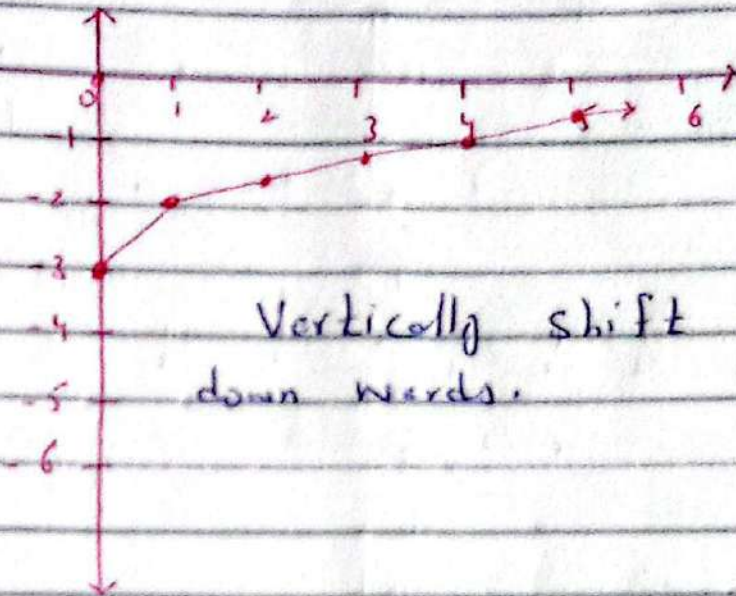 0 1 2 3 4 5 6
-1
-2
-3
-4
-5
-6
Vertically shift
down words.